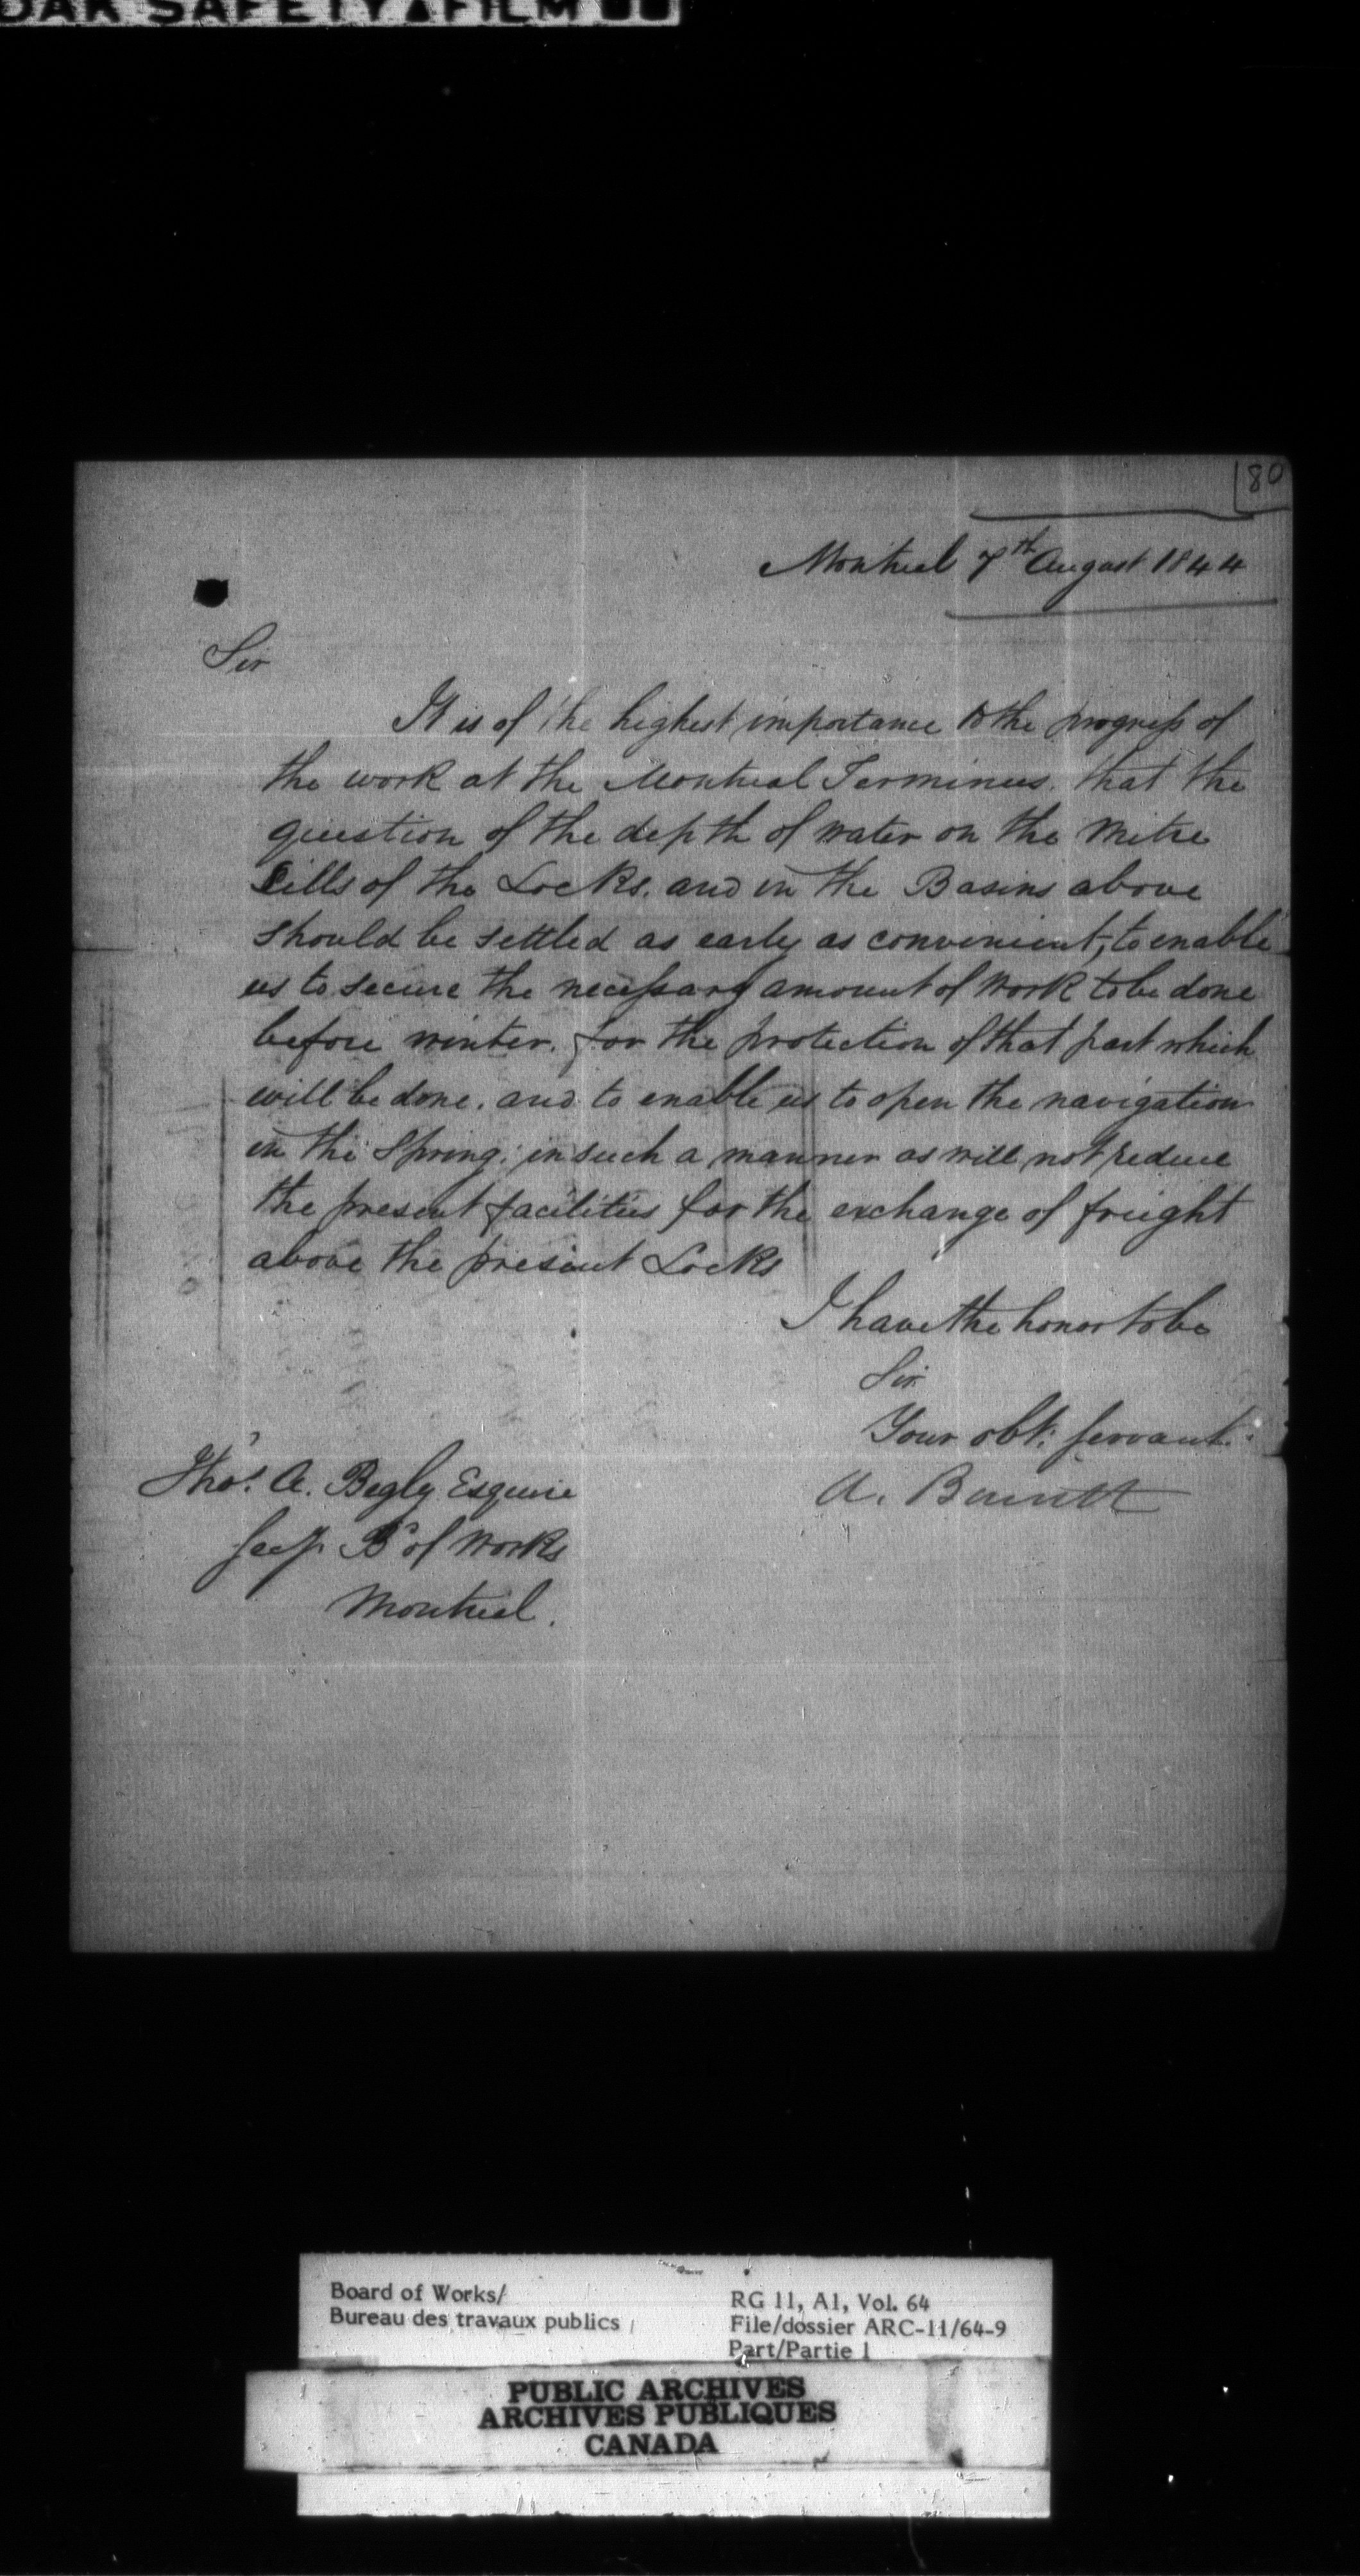 DAK SAFETY FILM
80
Montreal 7th August 1844
Sir
It is of the highest importance to the progress of
the work at the Montreal Terminus. that the
question of the depth of water on the Mitre
Sills of the Locks. and in the Basins above
should be settled as early as convenient, to enable
us to secure the necessary amount of work to be done
before winter. for the protection of that part which
will be done. and to enable us to open the navigation
in the Spring. in such a manner as will not reduce
the present facilities for the exchange of freight
above the present Locks
I have the honor to be
Sir
Your obt. servant
A. Barrett
Thos. A. Begly Esquire
Secy. Bd of Works
Montreal.
Board of Works/
Bureau des travaux publics
RG 11, A1, Vol. 64
File/dossier ARC-11/64-9
Part/Partie 1
PUBLIC ARCHIVES
ARCHIVES PUBLIQUES
CANADA